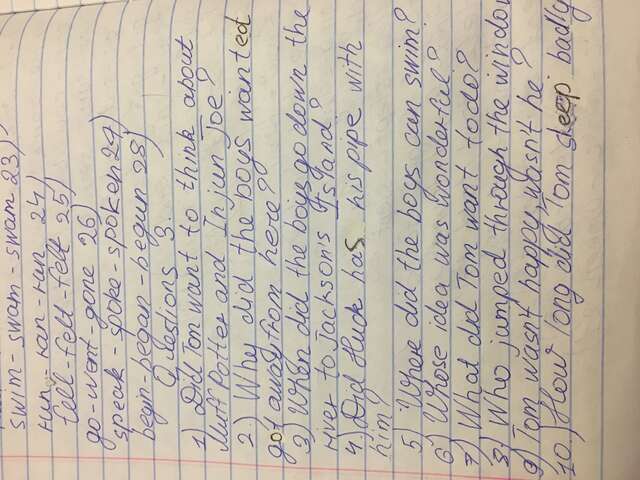 swim - swam - swam 23)
run - ran - ran 24)
fell - felt - felt 25)
go - went - gone 26)
speak - spoke - spoken 24)
begin - began - begun 28)
Questions 3.
1) Did Tom want to think about
Muff Potter and Injun Joe?
2) Why did the boys wanted
got away from here?
3) When did the boys go down the
river to Jackson's Island?
4.) Did Huck has his pipe with
him?
5) Where did the boys can swim?
6) Whose idea was wonderful?
7) What did Tom want to do?
8.) Who jumped through the window
9) Tom wasn't happy, wasn't he?
10.) How long did Tom sleep badly